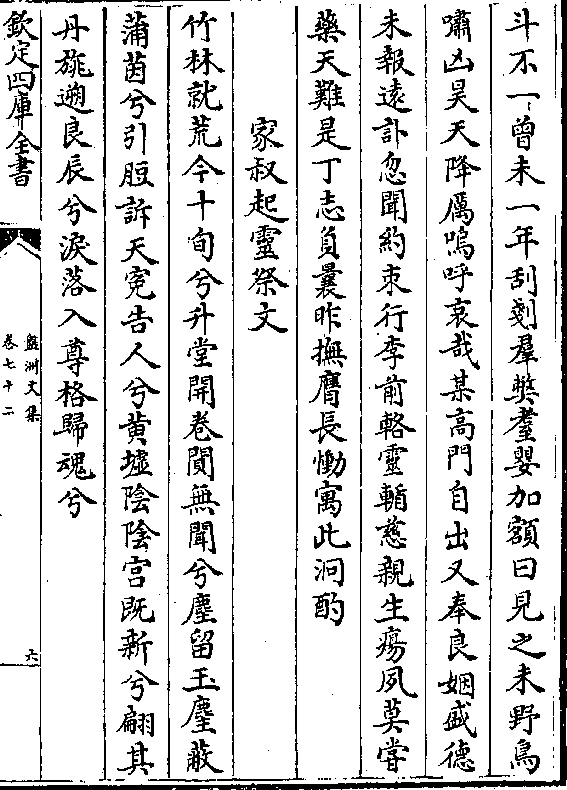 斗不一曾未一年刮剡羣弊耋嬰加額曰見之未野鳥
嘯凶昊天降厲嗚呼哀哉某高門自出又奉良姻盛德
未報遠訃忽聞約束行李前輅靈輴慈親生瘍夙莫嘗
藥天難是丁志負曩昨撫膺長慟寓此泂酌
家叔起靈祭文
竹林就荒今十旬兮升堂開卷閴無聞兮塵留玉麈蔽
蒲茵兮引脰訴天寃告人兮黄墟陰陰宫既新兮翩其
丹旐遡良辰兮淚落入尊格歸魂兮
欽定四庫全書
盤洲文集
卷七十二
六